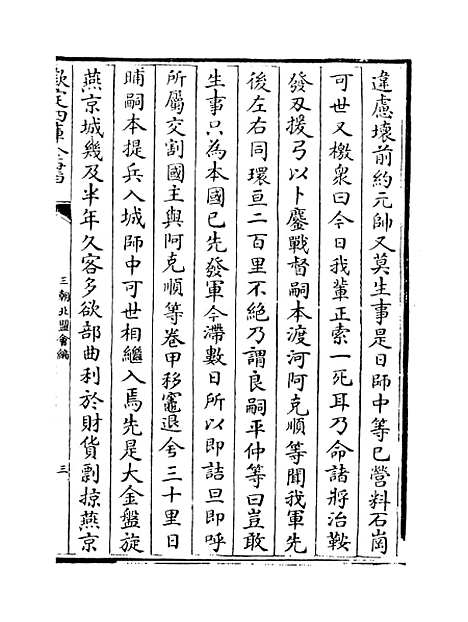 違慮壊前約元帥又莫生事是日師中等已營料石崗
可世又檄衆曰今日我輩正索一死耳乃命諸將治鞍
發刃援弓以卜鏖戰督嗣本渡河阿克順等聞我軍先
後左右同環亘二百里不絶乃謂良嗣平仲等曰豈敢
生事只為本國已先發軍今滯數日所以即詰旦即呼
所屬交割國主與阿克順等卷甲移竈退兮三十里日
晡嗣本提兵入城師中可世相繼入焉先是大金盤旋
燕京城幾及半年久客多欲部曲利於財貨剽掠燕京
欽定四庫全書
三朝北盟會編
三